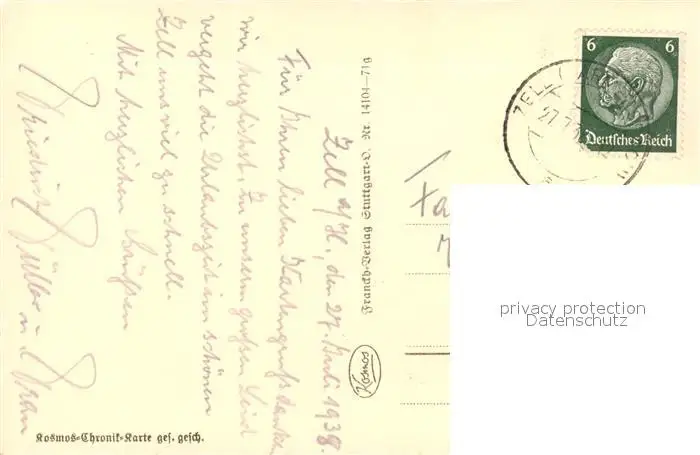 Zell a/H., den 27. Juli 1938.
Für Ihren lieben Kartengruß danken
wir herzlichst. Zu unserm großen Leid
vergeht die Urlaubszeit im schönen
Zell uns viel zu schnell.
Mit herzlichen Grüßen
Friedrich Müller u. Frau
Kosmos-Chronik-Karte ges. gesch.
Franckh-Verlag Stuttgart-O. Nr. 14104—71g
Kosmos
ZELL
27.7.
6 6
Deutsches Reich
privacy protection
Datenschutz